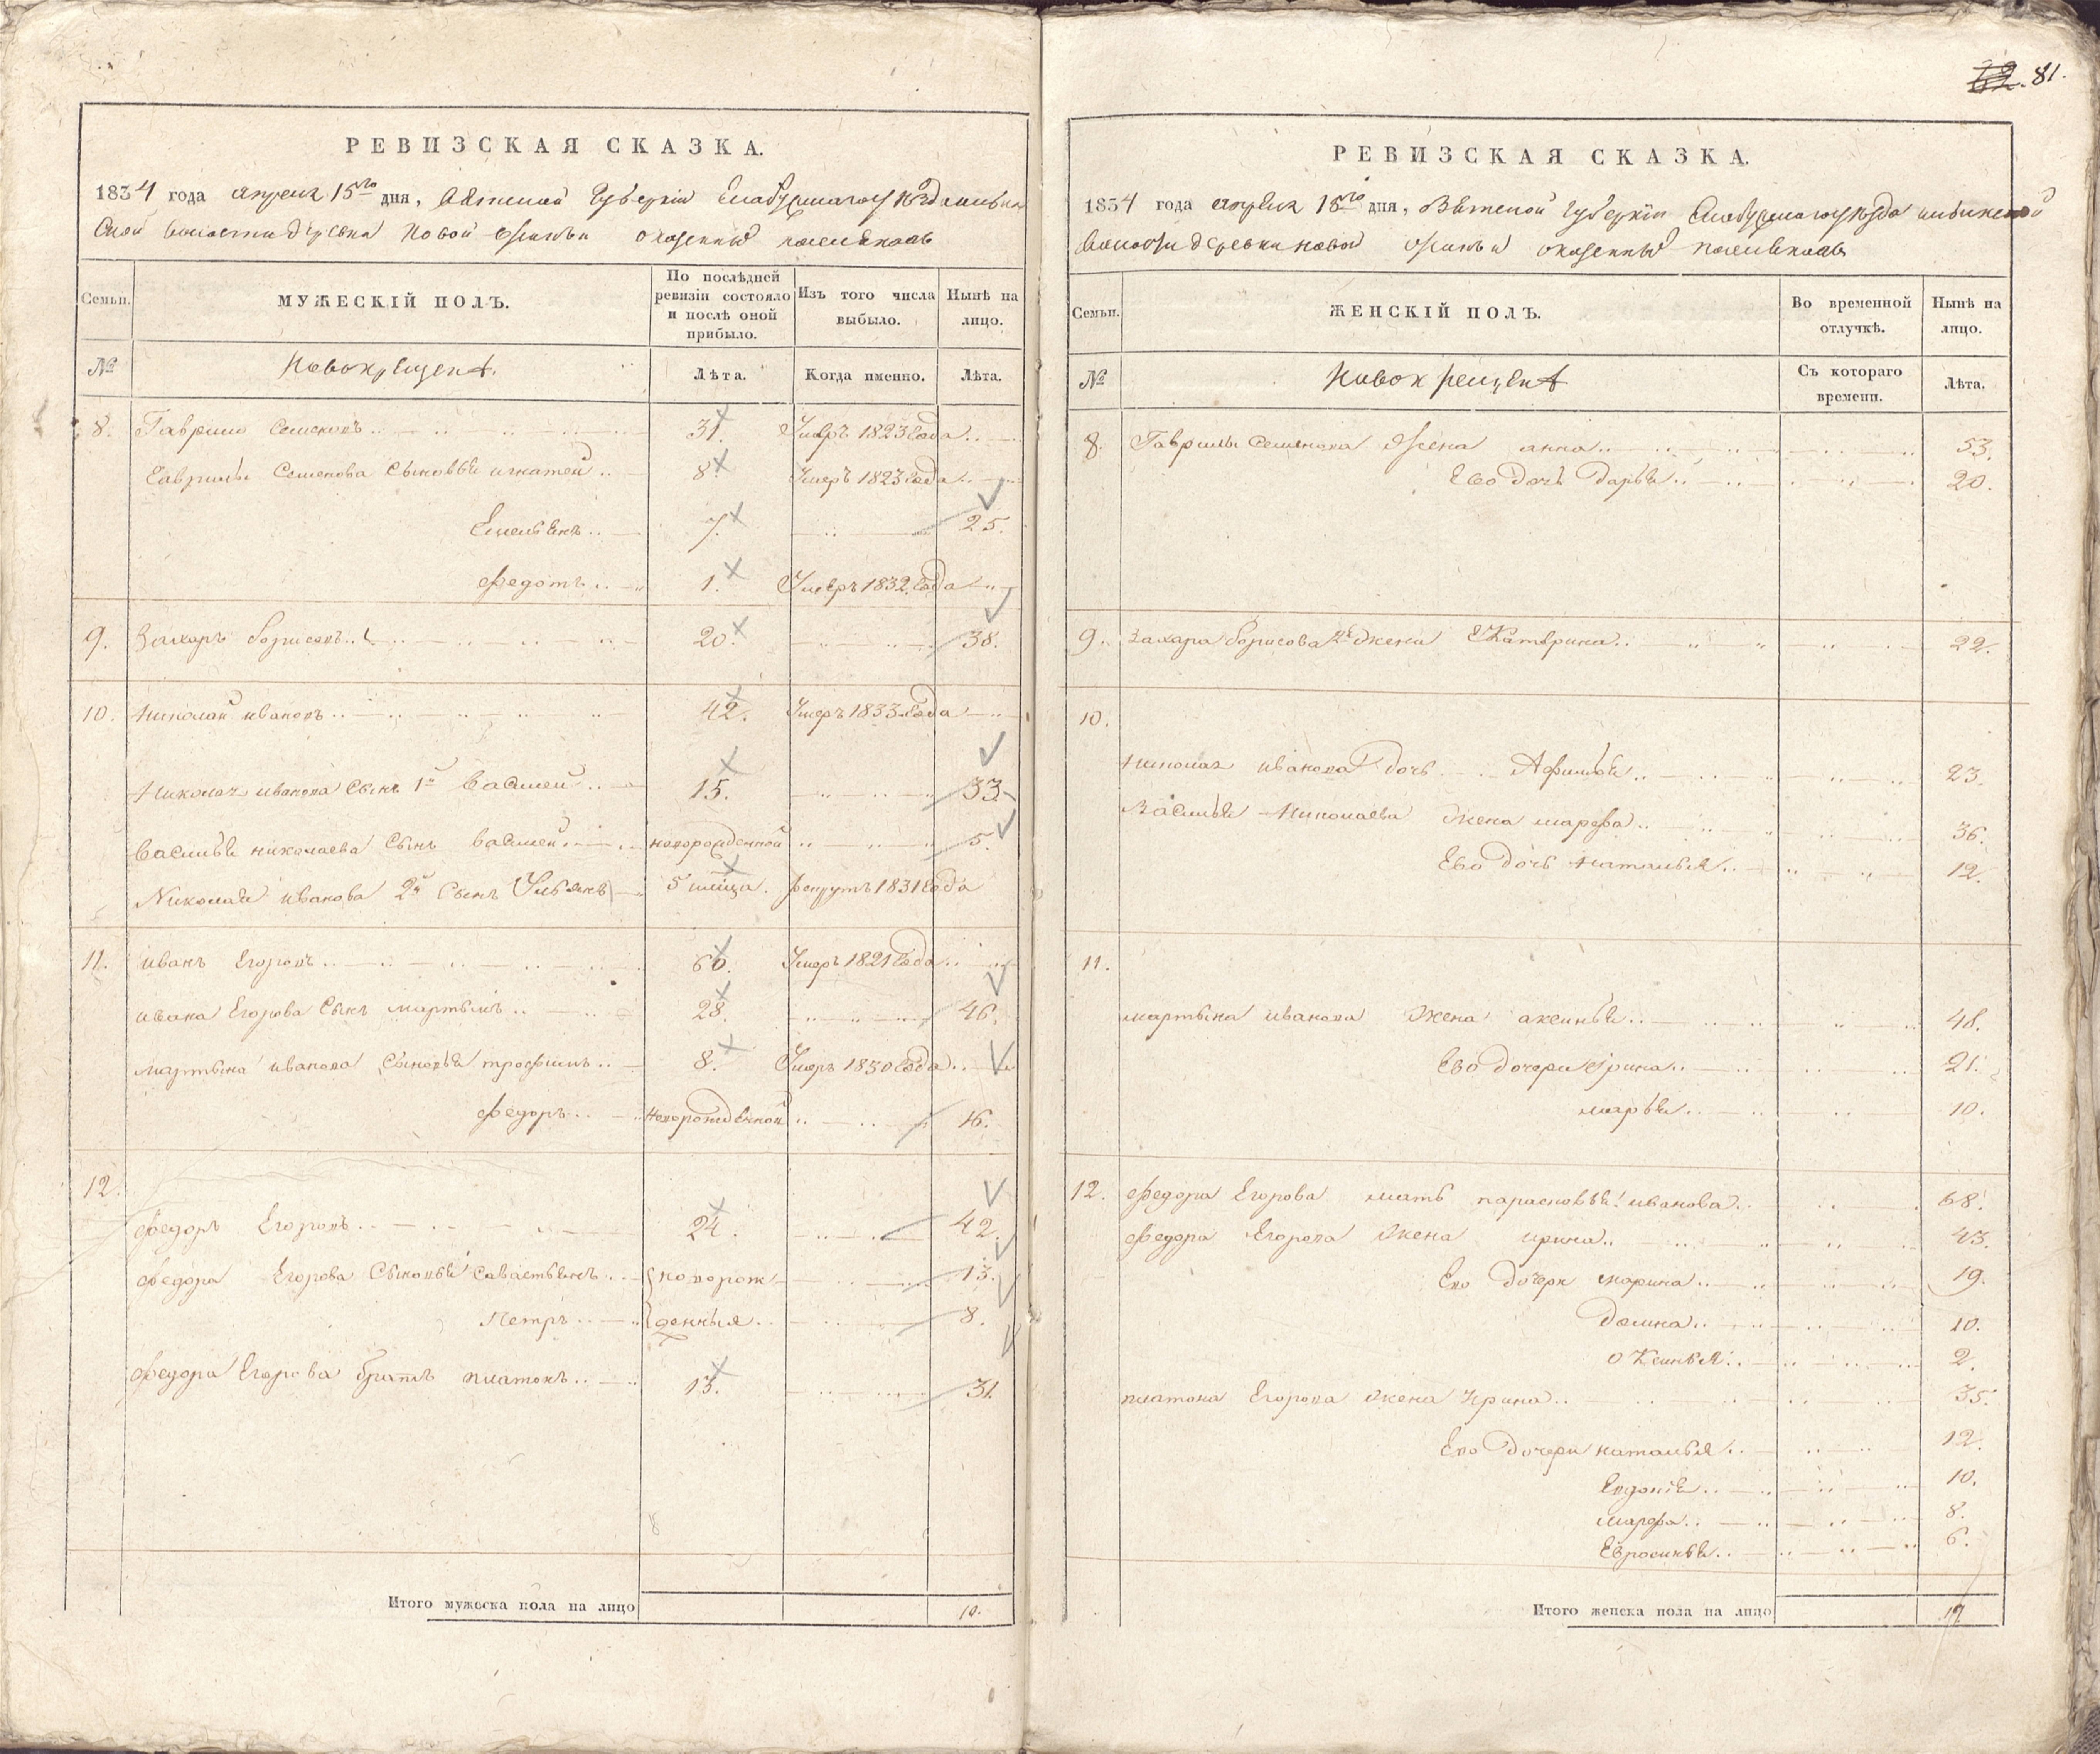 РЕВИЗСКАЯ СКАЗКА.
1834 года апреля 15го дня, Вятской Губернiи Елабужского уезда
ской волости деревни Новой о казенныхъ поселянахъ
Семьи.
МУЖЕСКІЙ ПОЛЪ.
По послѣдней ревизіи состояло и послѣ оной прибыло.
Изъ того числа выбыло.
Нынѣ на лицо.
№
Новокрещенъ.
Лѣта.
Когда именно.
Лѣта.
8. Гаврило Семеновъ 31. Умеръ 1823 Года
Гаврилы Семенова Сыновьи игнатей 8 Умеръ 1823 года
Емельянъ 7. 25.
Федотъ 1. Умеръ 1832 Года
9. Захаръ Борисовъ 20. 38.
10. Николай ивановъ 42. Умеръ 1833 Года
Николая иванова Сынъ 1й Василей 15. 33.
Василья николаева Сынъ Василей новорожденной 5.
Николая иванова 2й Сынъ Ульянъ 5 месца. рекрутъ 1831 Года
11. иванъ Егоровъ 60. Умеръ 1821 Года
ивана Егорова Сынъ мартынъ 28. 46.
мартына иванова Сыновьи трофимъ 8. Умеръ 1830 Года
Федоръ Новорожденной 16.
12.
Федоръ Егоровъ 24. 42.
Федора Егорова Сыновьи Савастьянъ новорож 13.
Петръ денныя 8.
Федора Егорова братъ платонъ 13. 31.
Итого мужеска пола на лицо 10.
81.
РЕВИЗСКАЯ СКАЗКА.
1834 года апреля 15го дня, Вятской Губернiи Елабужского уезда
волости деревни новой о казенныхъ поселянахъ
Семьи.
ЖЕНСКІЙ ПОЛЪ.
Во временной отлучкѣ.
Нынѣ на лицо.
№
Новокрещенъ
Съ котораго времени.
Лѣта.
8. Гаврилы Семенова Жена анна 53.
Ево Дочь Дарья 20.
9. Захара Борисова 2я Жена Катерина 22.
10.
Николая иванова Дочь Афимья 23.
Василья Николаева Жена марфа 36.
Ево Дочь наталья 12.
11.
мартына иванова Жена аксинья 48.
Ево Дочери Ирина 21.
марья 10.
12. Федора Егорова мать парасковья иванова 68.
Федора Егорова Жена ирина 43.
Ево Дочери марина 19.
Домна 10.
Оксинья 2.
платона Егорова Жена Ирина 35.
Ево Дочери наталья 12.
10.
Марфа 8.
Евросинья 6.
Итого женска пола на лицо 17.